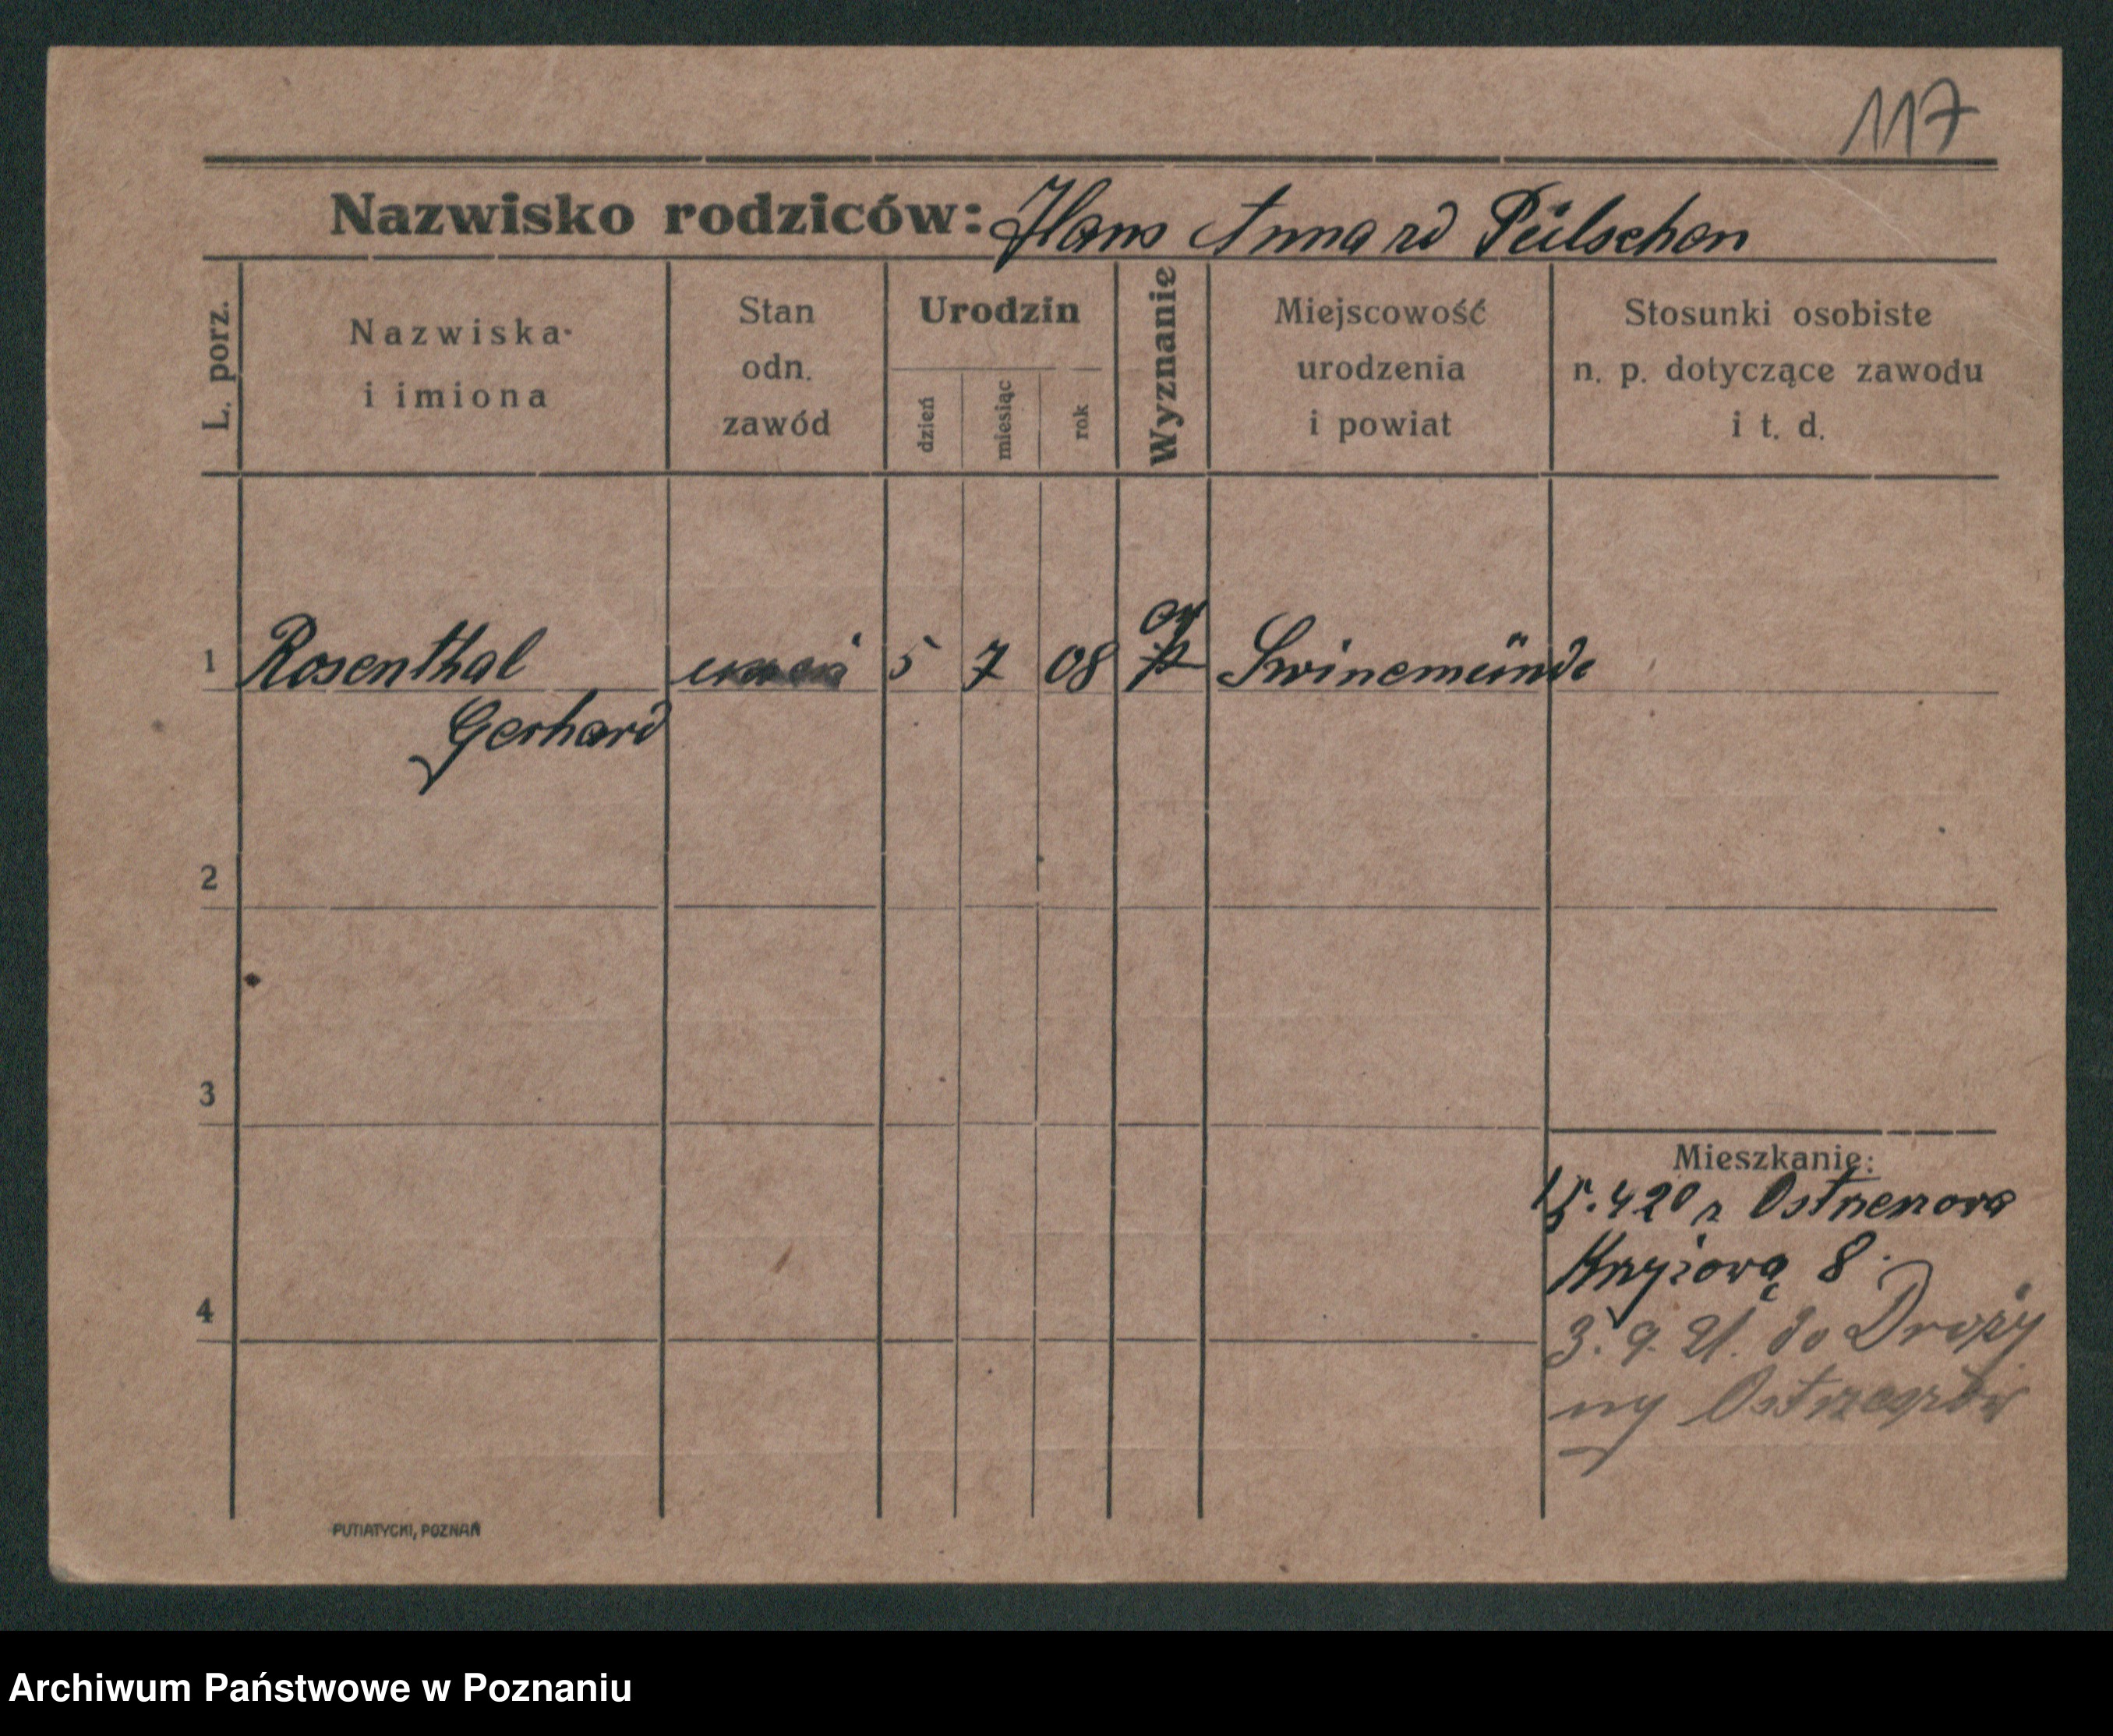 117
Nazwisko rodziców: Hans Anna rd Pülschen
L. porz.
Nazwiska
i imiona
Stan
odn.
zawód
Urodzin
dzień
miesiąc
rok
Wyznanie
Miejscowość
urodzenia
i powiat
Stosunki osobiste
n. p. dotyczące zawodu
i t. d.
ew
1 Rosenthal uczeń 5 7 08 Swinemünde
Gerhard
2
3
4
Mieszkanie:
15.4 20 z Ostrzeszowa
8.
3. 9. 21. do
ny Ostrzeszów
PUTIATYCKI, POZNAŃ
Archiwum Państwowe w Poznaniu